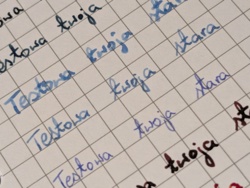 estowa twoja stara
Testowa twoja stara
Testowa twoja stara
Testowa twoja stara
twoja